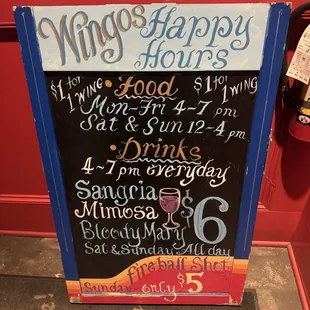 Wingos Happy Hours
$1 for 1 WING
Food
$1 for 1 WING
Mon-Fri 4-7 pm
Sat & Sun 12-4 pm
Drinks
4-7 pm everyday
Sangria
Mimosa
$6
Bloody Mary
Sat & Sunday All day
Fireball Shot
Sunday only $5